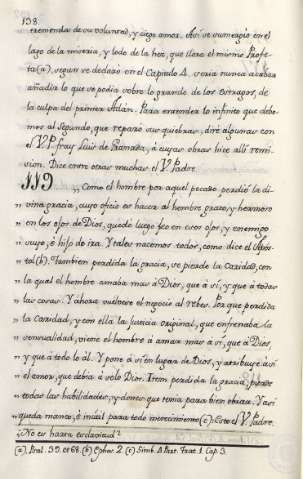 138
tremenda de su voluntad, y ciego amor. Assi se sumergio en el
lago de la miseria, y lodo de la hez, que llora el mismo Profe-
ta (a), segun se declaró en el Capitulo 4. seria nunca acabar
añadir lo que se podia sobre lo grande de los estragos, de
la culpa del primer Adán. Para entender lo infinito que debe-
mos al Segundo, que reparó sus quiebras, diré algunas con
el V. P. fray Luis de Granada, á cuyas obras hice allí remi-
sion. Dice entre otras muchas el V. Padre.
119 „ Como el hombre por aquel pecado perdió la di-
„ vina gracia, cuyo oficio es hacer al hombre grato, y hermoso
„ en los ojos de Dios, quedó luego feo en esos ojos, y enemigo
„ suyo, é hijo de ira. Y tales nacemos todos, como dice el Após-
„ tol (b). Tambien perdida la gracia, se pierde la Caridad, con
„ la qual el hombre amaba mas á Dios, que á sí, y que á todas
„ las cosas. Y ahora vuelvese el negocio al rebes. Porque perdida
„ la Caridad, y con ella la Justicia original, que enfrenaba la
„ sensualidad, viene el hombre á amar mas á sí, que á Dios,
„ y que á todo lo ál. Y pone á sí en lugar de Dios, y atribuye á sí
„ el amor, que debia á solo Dios. Item perdida la gracia, perdió
„ todas las habilidades, y dones que tenia para bien obrar. Y así
„ queda manco, é inútil para todo merecimiento (c): Esto el V. Padre.
¿No es harta esclavitud?
(a). Psal. 39. et 68. (b) Ephes. 2. (c) Simb. 4 Part. Trat. 1. Cap. 3.